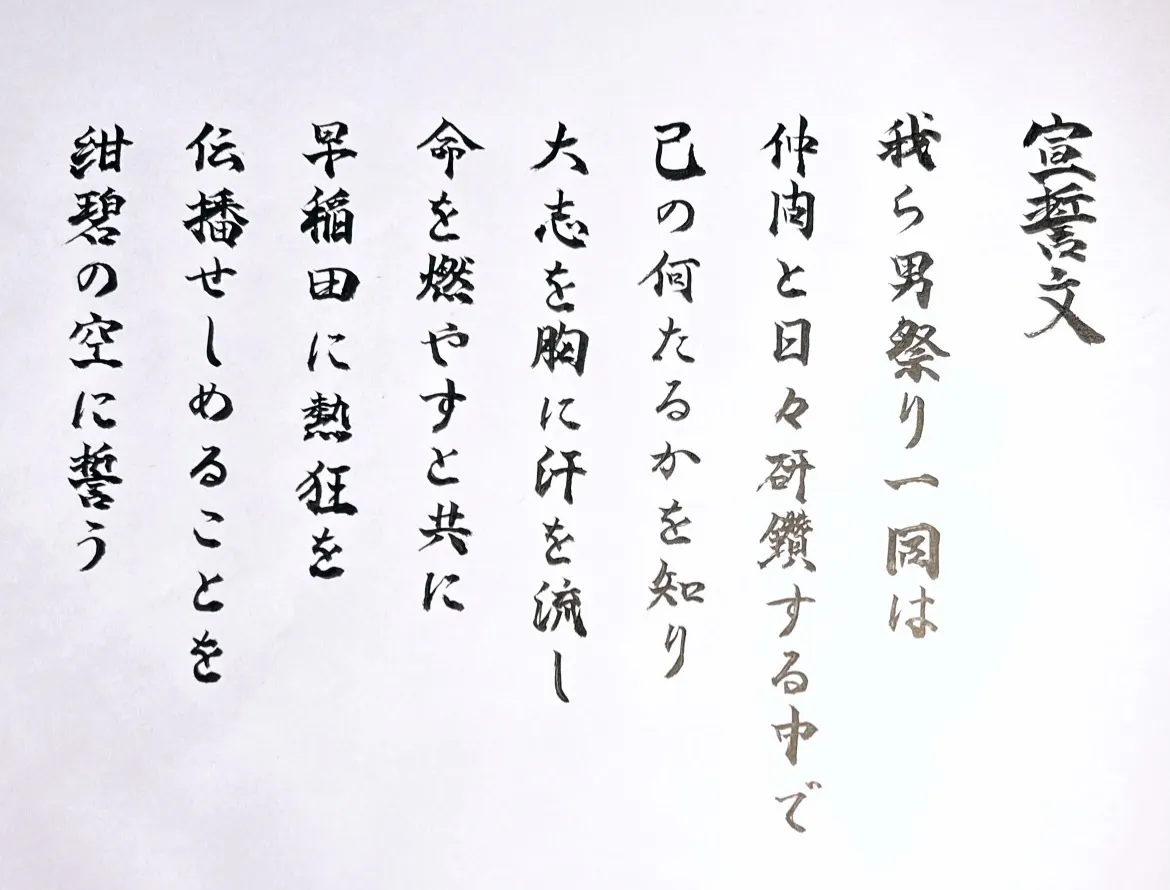 宣誓文
我ら男祭り一同は
仲間と日々研鑽する中で
己の何たるかを知り
大志を胸に汗を流し
命を燃やすと共に
早稲田に熱狂を
伝播せしめることを
紺碧の空に誓う